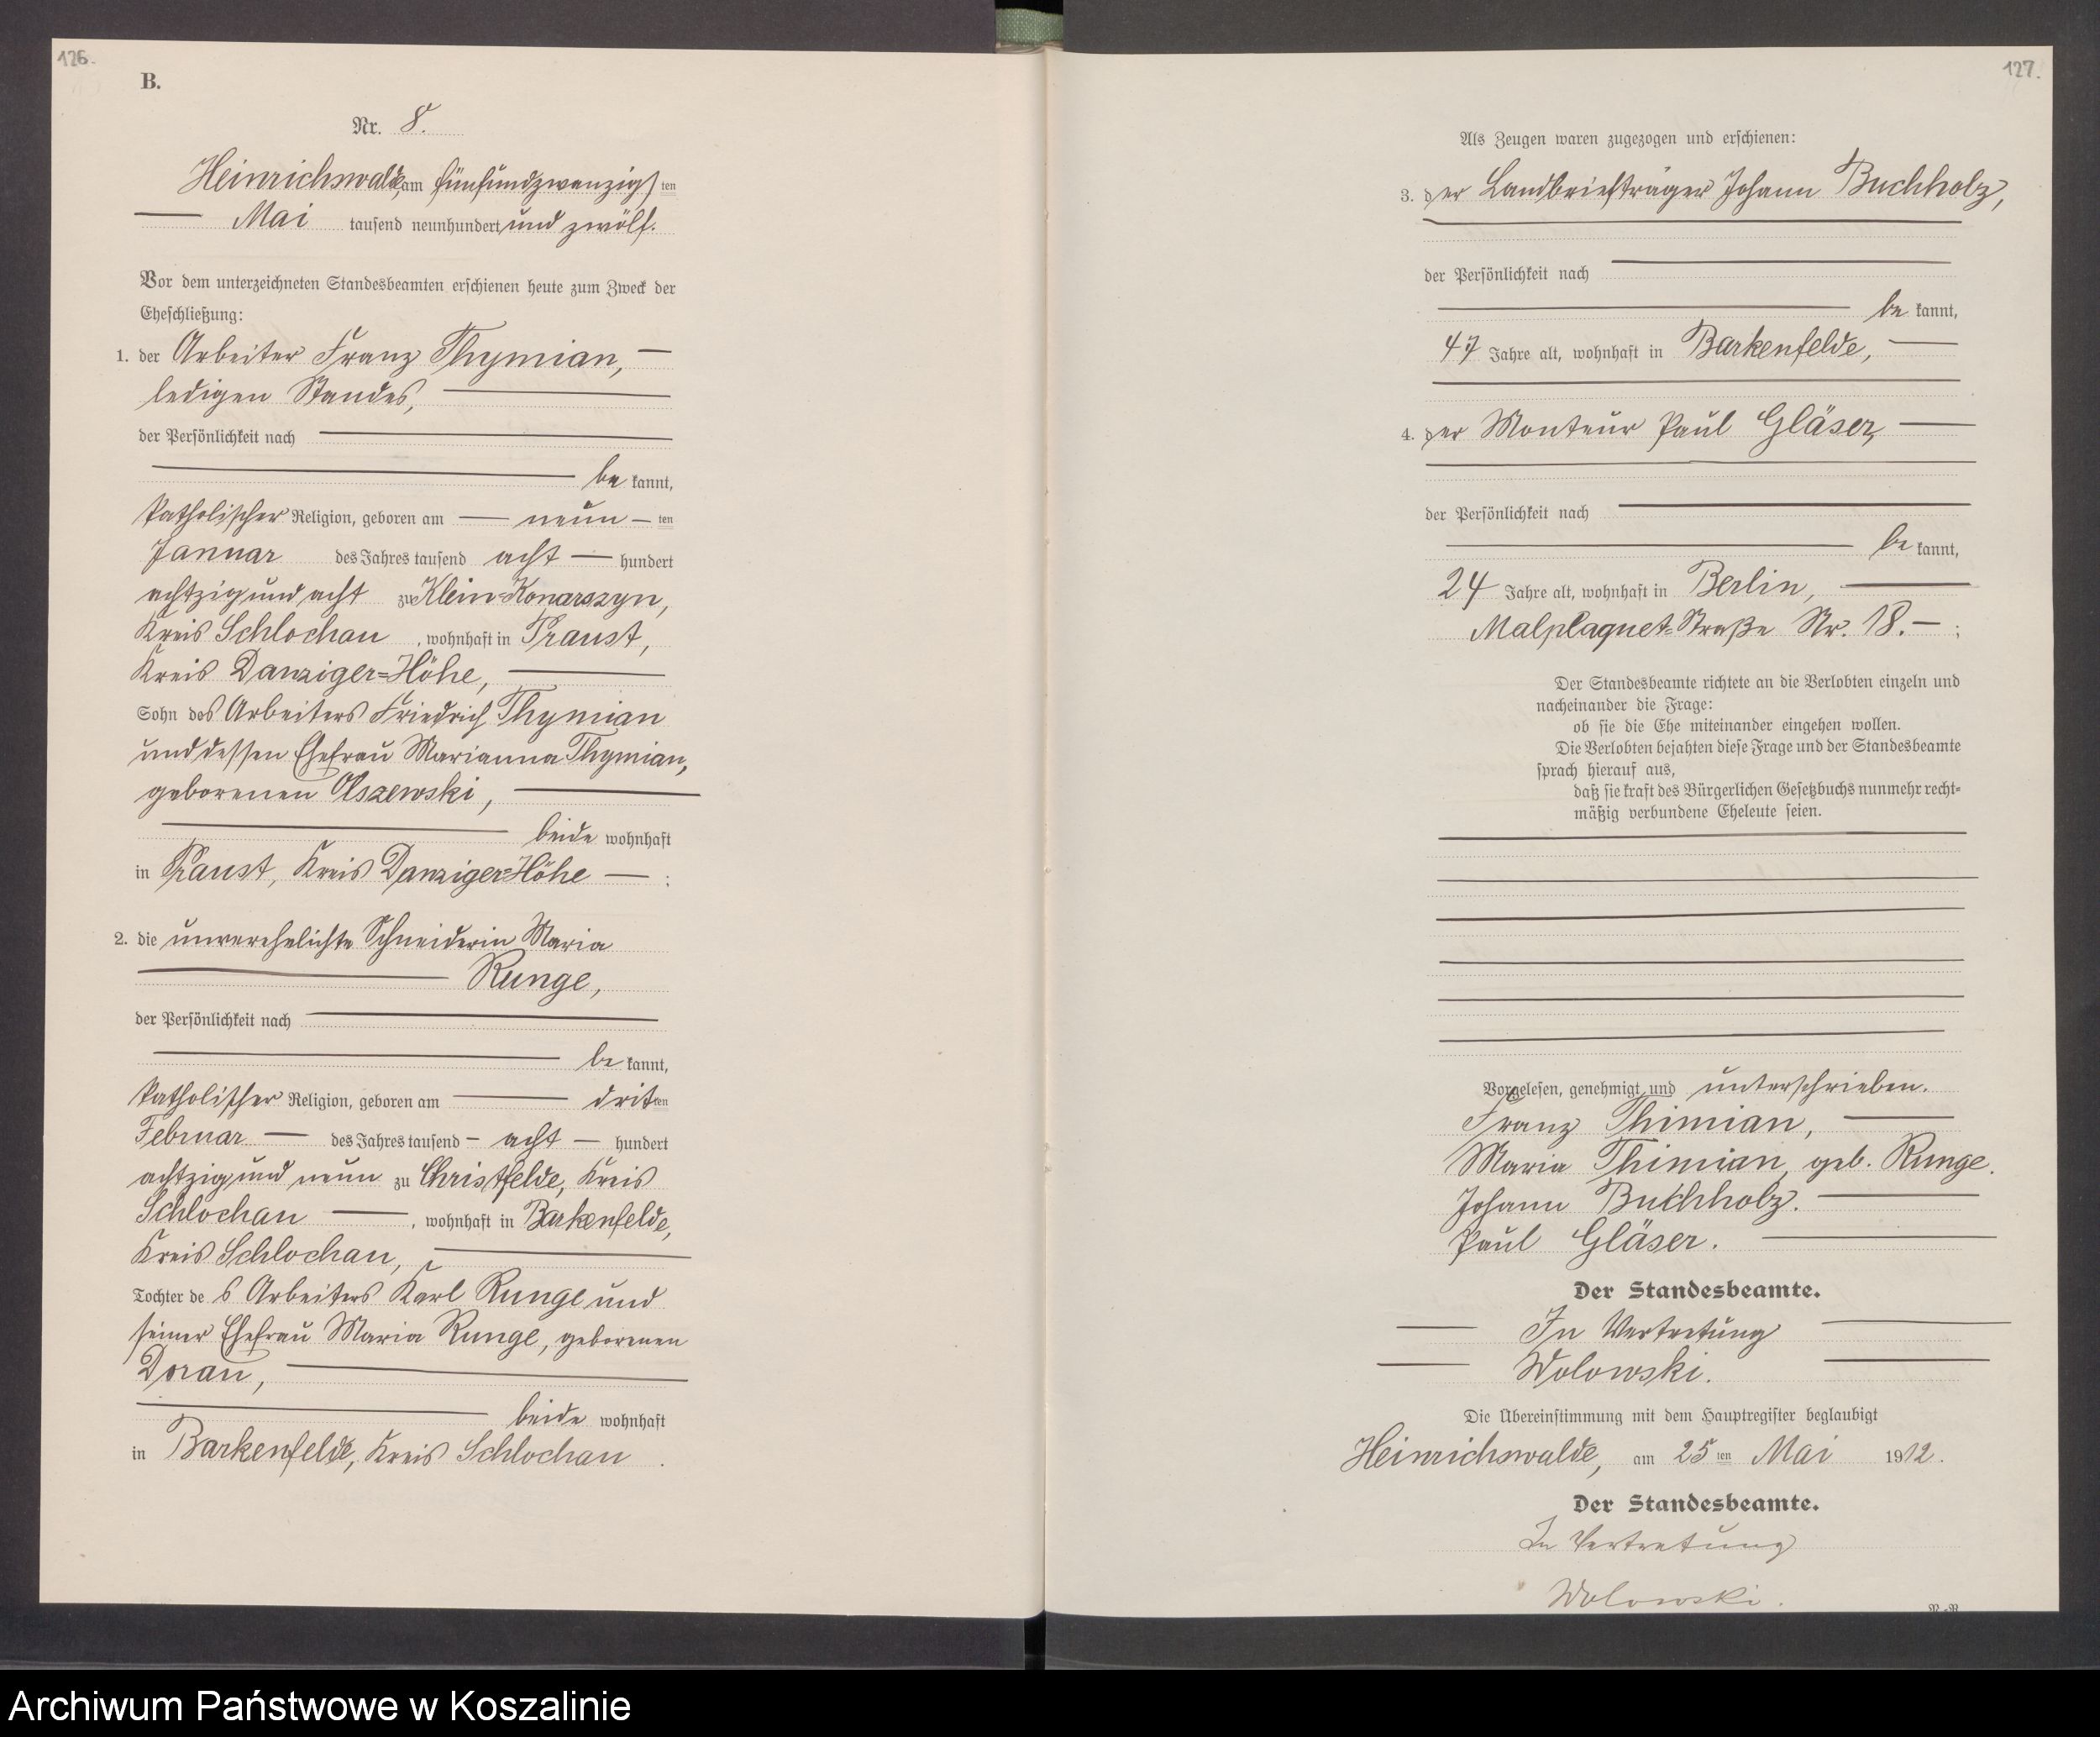 126.
B.
Nr. 8.
Heinrichswalde, am fünfundzwanzigsten
Mai tausend neunhundert und zwölf.
Vor dem unterzeichneten Standesbeamten erschienen heute zum Zweck der
Eheschließung:
1. der Arbeiter Franz Thymian,
ledigen Standes,
der Persönlichkeit nach
be kannt,
katholischer Religion, geboren am neun ten
Januar des Jahres tausend acht hundert
achtzig und acht zu Klein-Konarszyn,
Kreis Schlochau, wohnhaft in Praust,
Kreis Danziger-Höhe,
Sohn des Arbeiters Friedrich Thymian
und dessen Ehefrau Marianna Thymian,
geborenen Olszewski,
beide wohnhaft
in Praust, Kreis Danziger-Höhe :
2. die unverehelichte Schneiderin Maria
Runge,
der Persönlichkeit nach
be kannt,
katholischer Religion, geboren am dritten
Februar des Jahres tausend acht hundert
achtzig und neun zu Christfelde, Kreis
Schlochau, wohnhaft in Barkenfelde,
Kreis Schlochau,
Tochter des Arbeiters Karl Runge und
seiner Ehefrau Maria Runge, geborenen
Dorau,
beide wohnhaft
in Barkenfelde, Kreis Schlochau.
127.
Als Zeugen waren zugezogen und erschienen:
3. der Landbriefträger Johann Buchholz,
der Persönlichkeit nach
be kannt,
47 Jahre alt, wohnhaft in Barkenfelde,
4. der Monteur Paul Gläser,
der Persönlichkeit nach
be kannt,
24 Jahre alt, wohnhaft in Berlin,
Malplaquet-Straße Nr. 18. ;
Der Standesbeamte richtete an die Verlobten einzeln und
nacheinander die Frage:
ob sie die Ehe miteinander eingehen wollen.
Die Verlobten bejahten diese Frage und der Standesbeamte
sprach hierauf aus,
daß sie kraft des Bürgerlichen Gesetzbuchs nunmehr recht-
mäßig verbundene Eheleute seien.
Vorgelesen, genehmigt und unterschrieben.
Franz Thimian,
Maria Thimian, geb. Runge.
Johann Buchholz.
Paul Gläser.
Der Standesbeamte.
In Vertretung
Wolowski.
Die Übereinstimmung mit dem Hauptregister beglaubigt
Heinrichswalde, am 25 ten Mai 1912.
Der Standesbeamte.
In Vertretung
Wolowski.
Archiwum Państwowe w Koszalinie